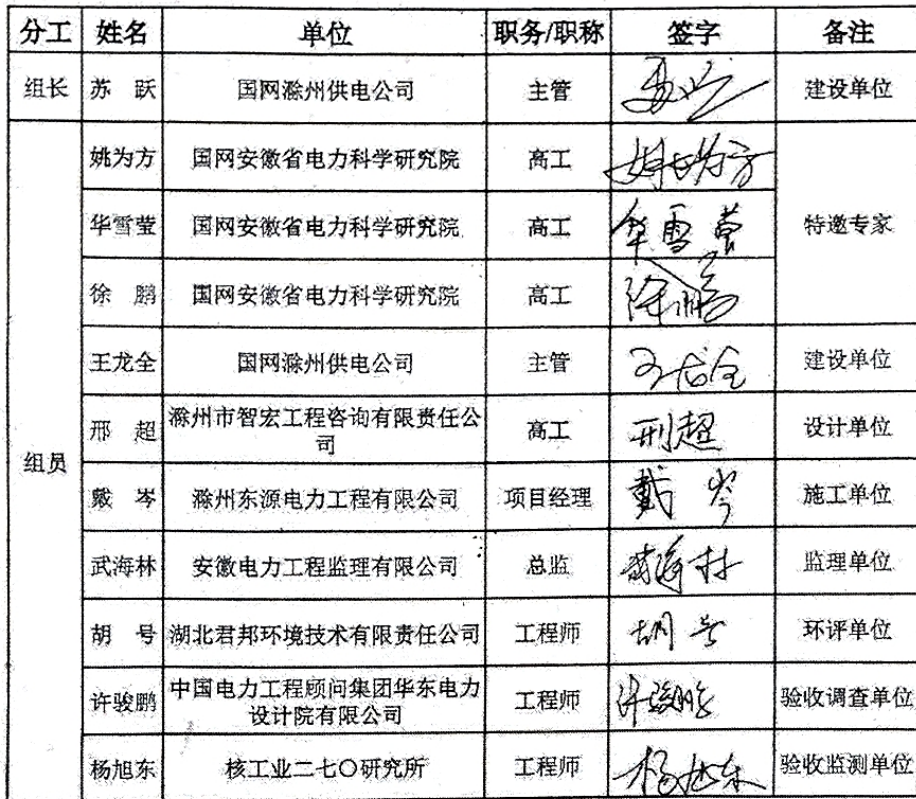 分工 姓名 单位 职务/职称 签字 备注
组长 苏 跃 国网滁州供电公司 主管 建设单位
组员
姚为方 国网安徽省电力科学研究院 高工 姚为方
特邀专家
华雪莹 国网安徽省电力科学研究院 高工 华雪莹
徐 鹏 国网安徽省电力科学研究院 高工 徐鹏
王龙全 国网滁州供电公司 主管 王龙全 建设单位
邢 超 滁州市智宏工程咨询有限责任公
司 高工 邢超 设计单位
戴 岑 滁州东源电力工程有限公司 项目经理 戴岑 施工单位
武海林 安徽电力工程监理有限公司 总监 武海林 监理单位
胡 号 湖北君邦环境技术有限责任公司 工程师 胡号 环评单位
许骏鹏 中国电力工程顾问集团华东电力
设计院有限公司 工程师 许骏鹏 验收调查单位
杨旭东 核工业二七〇研究所 工程师 杨旭东 验收监测单位